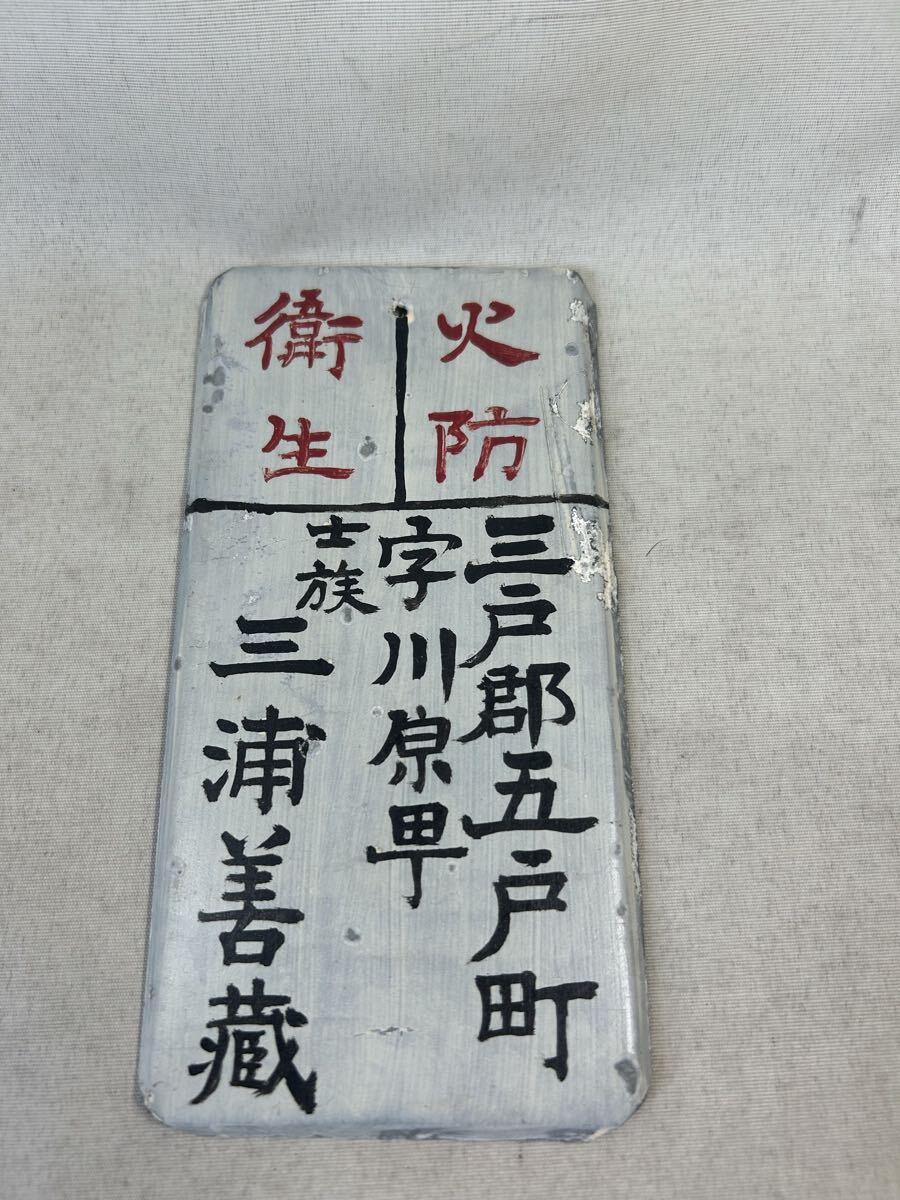 火防
衛生
三戸郡五戸町
字川原甼
士族
三浦善藏